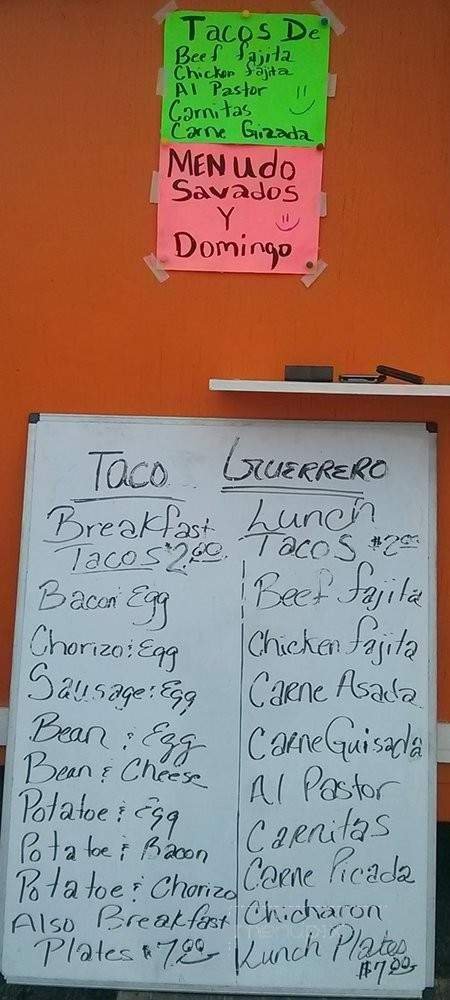 Tacos De
Beef fajita
Chicken fajita
Al Pastor
Carnitas
Carne Gizada
MENudo
Savados
Y
Domingo
Taco Guerrero
Breakfast
Tacos $2.00
Bacon Egg
Chorizo & Egg
Sausage & Egg
Bean & Egg
Bean & Cheese
Potatoe & Egg
Potatoe & Bacon
Potatoe & Chorizo
Also Breakfast
Plates $7.00
Lunch
Tacos $2.00
Beef fajita
Chicken fajita
Carne Asada
Carne Guisada
Al Pastor
Carnitas
Carne Picada
Chicharon
Lunch Plates
$7.00